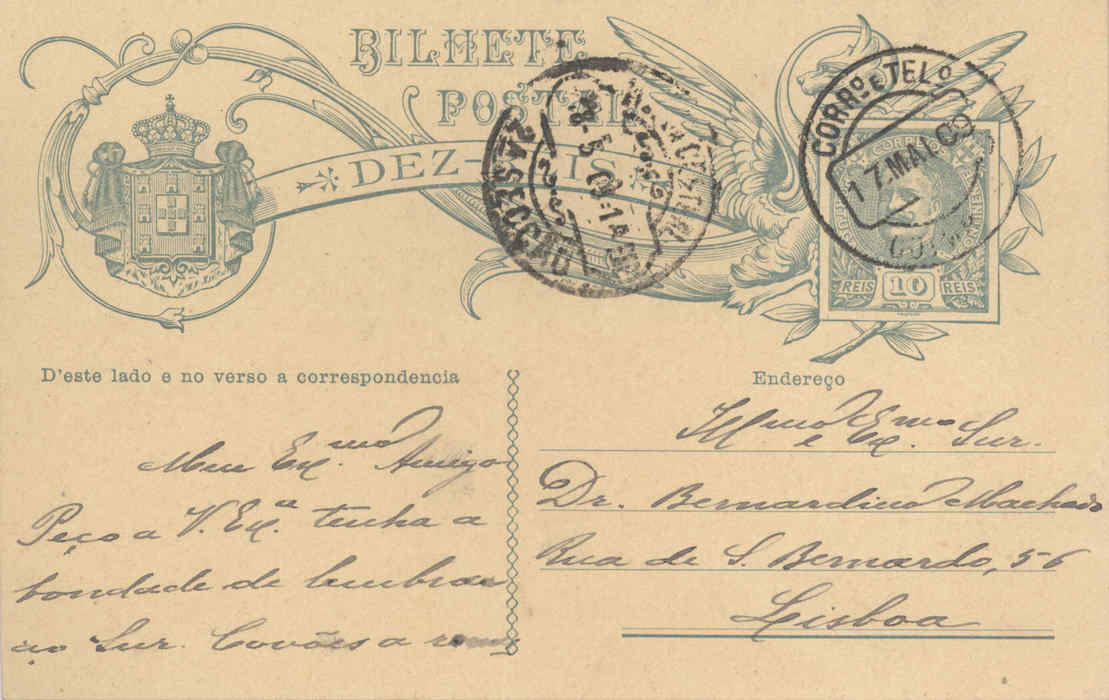 BILHETE
POSTAL
DEZ-REIS
CORRº E TELº
17.MAI.09
2A SECCÃO
CORREIO
REIS 10 REIS
D'este lado e no verso a correspondencia
Endereço
Meu Exmo Amigo
Peço a V. Exa. tenha a
bondade de lembrar
ao Snr. Covões a
Illmo e Exmo Snr.
Dr. Bernardino Machado
Rua de S. Bernardo, 56
Lisboa